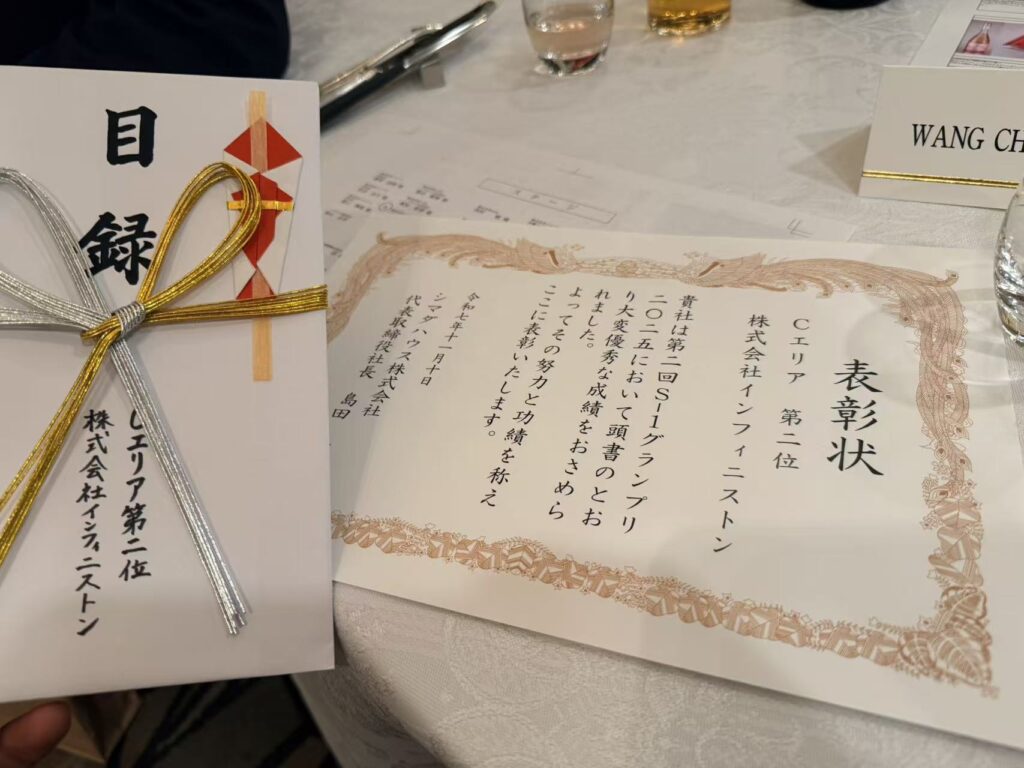 目録
Cエリア第二位
株式会社インフィニストン
表彰状
Cエリア 第二位
株式会社インフィニストン
貴社は第二回S-1グランプリ
二〇二五において頭書のとお
り大変優秀な成績をおさめら
れました。
よってその努力と功績を称え
ここに表彰いたします。
令和七年十一月十日
シマダハウス株式会社
代表取締役社長 島田
WANG CH
ステージ